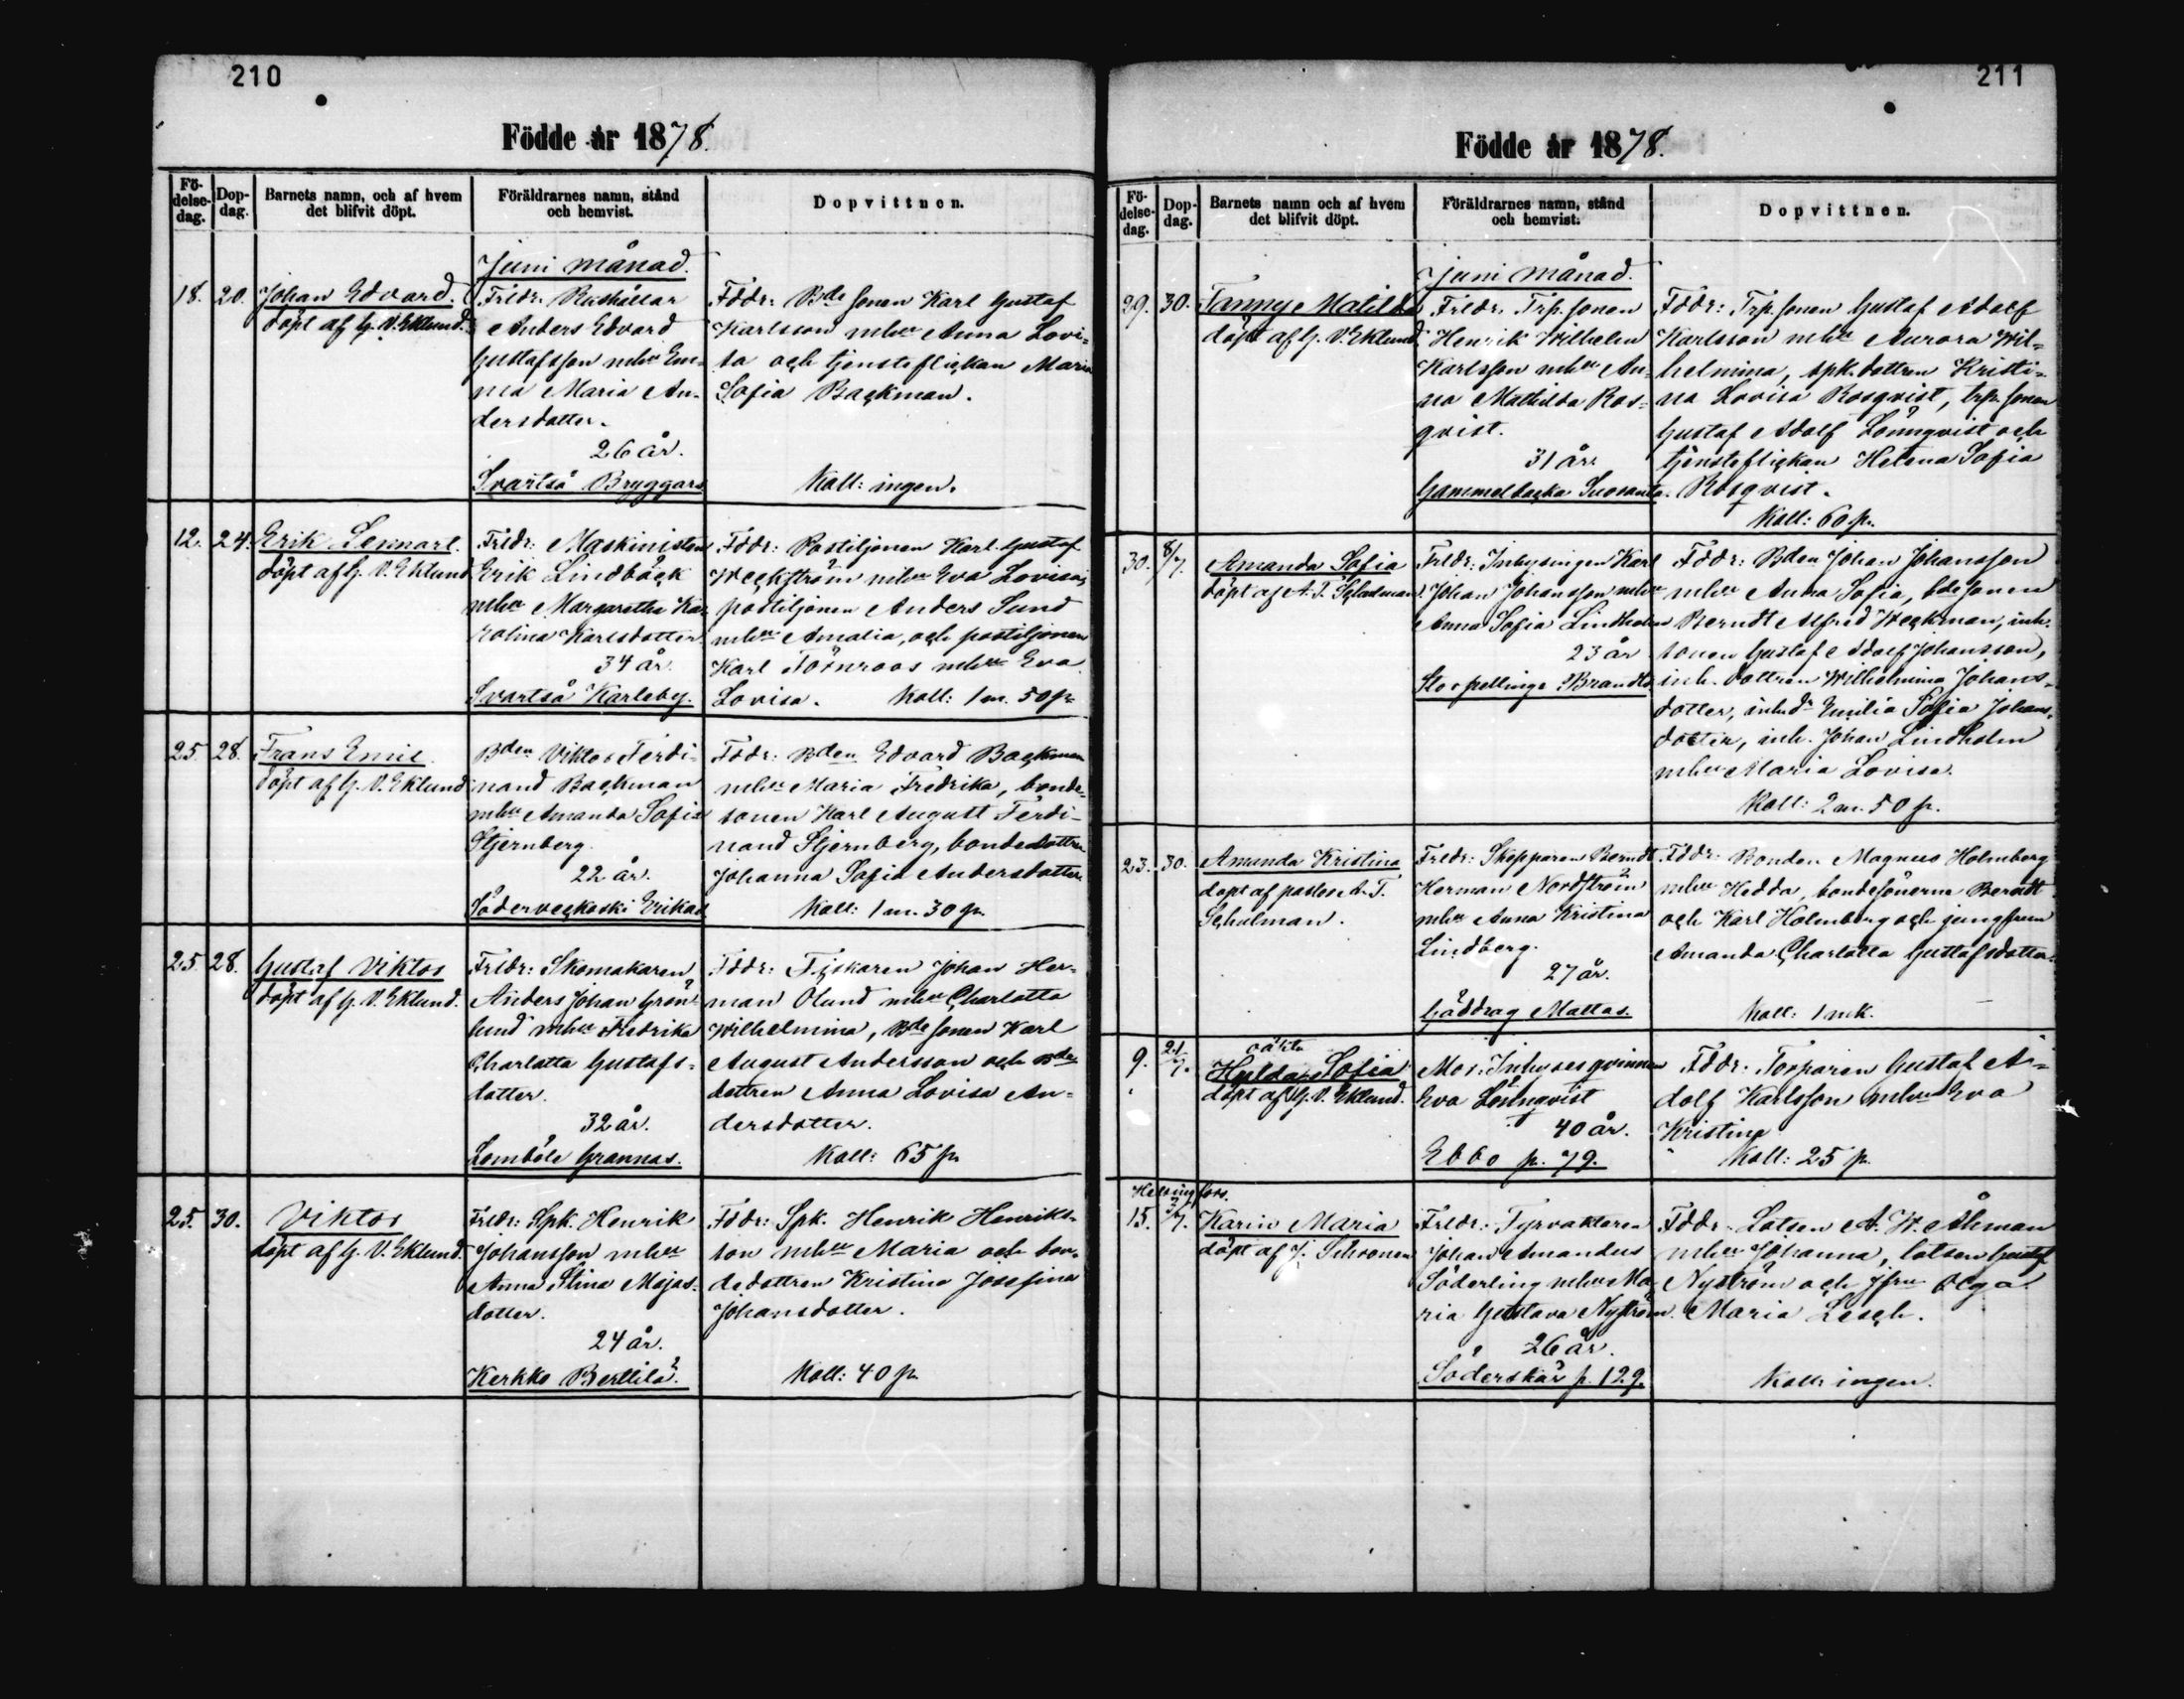 210
Födde år 1878.
Fö-
delse-
dag.
Dop-
dag.
Barnets namn, och af hvem
det blifvit döpt.
Föräldrarnes namn, stånd
och hemvist.
Dopvittnen.
Juni månad.
18.
20.
Johan Edvard.
döpt af G. V. Eklund.
Frldr. Rusthållar
Anders Edvard
Gustafsson mhu Em-
ma Maria An-
dersdotter.
26 år.
Svartså Bryggars
Fddr: Bde sonen Karl Gustaf
Karlsson mhu Anna Lovi-
sa och tjensteflickan Maria
Sofia Backman.
Koll: ingen.
12.
24.
Erik Lennart.
döpt af G. V. Eklund
Frldr: Maskinisten
Erik Lindbäck
mhu Margaretha Ka-
rolina Karlsdotter
34 år.
Svartså Karleby.
Fddr: Postiljonen Karl Gustaf
Weckström mhu Eva Lovisa,
postiljonen Anders Sund
mhu Amalia, och postiljonen
Karl Törnroos mhu Eva
Lovisa. Koll: 1 m. 50 p.
25.
28.
Frans Emil
döpt af G. V. Eklund
Bden Viktor Ferdi-
nand Backman
mhu Amanda Sofia
Stjernberg.
22 år.
Söderveckoski Erikas
Fddr: Bden Edvard Backman
mhu Maria Fredrika, bonde-
sonen Karl August Ferdi-
nand Stjernberg, bondedottren
Johanna Sofia Andersdotter
Koll: 1 m. 30 p.
25.
28.
Gustaf Viktor
döpt af G. V. Eklund.
Frldr: Skomakaren
Anders Johan Grön-
lund mhu Fredrika
Charlotta Gustafs-
dotter.
32 år.
Lomböle Grannas.
Fddr: Fiskaren Johan Her-
man Ölund mhu Charlotta
Wilhelmina, Bde sonen Karl
August Andersson och Bde
dottren Anna Lovisa An-
dersdotter.
Koll: 65 p.
25.
30.
Viktor
döpt af G. V. Eklund.
Frldr: Spk. Henrik
Johansson mhu
Anna Stina Majas-
dotter.
24 år.
Kerkko Berttilä.
Fddr: Spk. Henrik Henriks-
son mhu Maria och bon-
dedottren Kristina Josefina
Johansdotter.
Koll: 40 p.
211
Födde år 1878.
Fö-
delse-
dag.
Dop-
dag.
Barnets namn och af hvem
det blifvit döpt.
Föräldrarnes namn, stånd
och hemvist.
Dopvittnen.
Juni månad.
29.
30.
Fanny Matilda
döpt af G. V. Eklund.
Frldr. Trp. sonen
Henrik Wilhelm
Karlsson mhu An-
na Mathilda Ros-
qvist.
31 år.
Gammelbacka Suosanta.
Fddr: Trp. sonen Gustaf Adolf
Karlsson mhu Aurora Wil-
helmina, spk. dottren Kristi-
na Lovisa Rosqvist, trp. sonen
Gustaf Adolf Lönnqvist och
tjensteflickan Helena Sofia
Rosqvist.
Koll: 60 p.
30.
8/7.
Amanda Sofia
döpt af A. T. Schulman
Frldr: Inhysingen Karl
Johan Johansson mhu
Anna Sofia Lindholm
23 år
Storpellinge Brandts
Fddr: Bden Johan Johansson
mhu Anna Sofia, bde sonen
Berndt Alfred Weckman, inh.
sonen Gustaf Adolf Johansson,
inh. dottren Wilhelmina Johans-
dotter, inh. dr Emilia Sofia Johans-
dotter, inh. Johan Lindholm
mhu Maria Lovisa.
Koll: 2 m. 50 p.
23.
30.
Amanda Kristina
döpt af pastor A. T.
Schulman.
Frldr: Skepparen Berndt
Herman Nordström
mhu Anna Kristina
Lindberg.
27 år.
Gäddrag Mattas.
Fddr: Bonden Magnus Holmberg
mhu Hedda, bondesönerna Berndt
och Karl Holmberg och jungfrun
Amanda Charlotta Gustafsdotter.
Koll: 1 mk.
9.
21/7.
oäkta
Hulda Sofia
döpt af G. V. Eklund.
Mor: Inhysesqvinnan
Eva Lönnqvist
40 år.
Ebbo p. 79.
Fddr: Torparen Gustaf A-
dolf Karlsson mhu Eva
Kristina
Koll: 25 p.
Helsingfors.
15.
3/7.
Karin Maria
döpt af J. Schroner
Frldr: Fyrvaktaren
Johan Amandus
Söderling mhu Ma-
ria Gustava Nyström.
26 år.
Söderskär p. 129.
Fddr: Lotsen A. W. Åhman
mhu Johanna, lotsen Gustaf
Nyström och jfru Olga
Maria Lesch.
Koll: ingen.